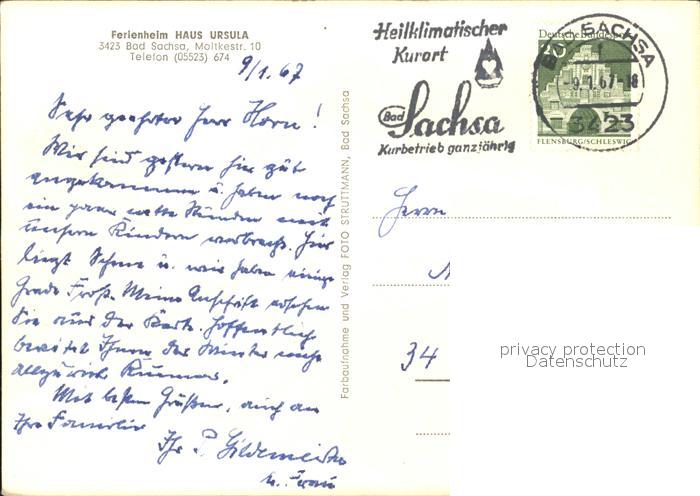 Ferienheim HAUS URSULA
3423 Bad Sachsa, Moltkestr. 10
Telefon (05523) 674
9/1.67
Sehr geehrter Herr Horn!
Wir sind gestern hier gut
angekommen u. haben noch
ein paar nette Stunden mit
unsern Kindern verbracht. Hier
liegt Schnee u. wir haben einige
Grade Frost. Meine Anschrift ersehen
Sie aus der Karte. Hoffentlich
bereitet Ihnen der Winter nicht
allzuviel Kummer.
Mit besten Grüßen, auch an
Ihre Familie
Ihr P. Gildemeister
u. Frau
Farbaufnahme und Verlag FOTO STRUTTMANN, Bad Sachsa
Heilklimatischer
Kurort
Bad Sachsa
Kurbetrieb ganzjährig
Deutsche Bundespost
20
FLENSBURG/SCHLESWIG
BAD SACHSA
-9.1.67-18
3423
Herrn
34
privacy protection
Datenschutz